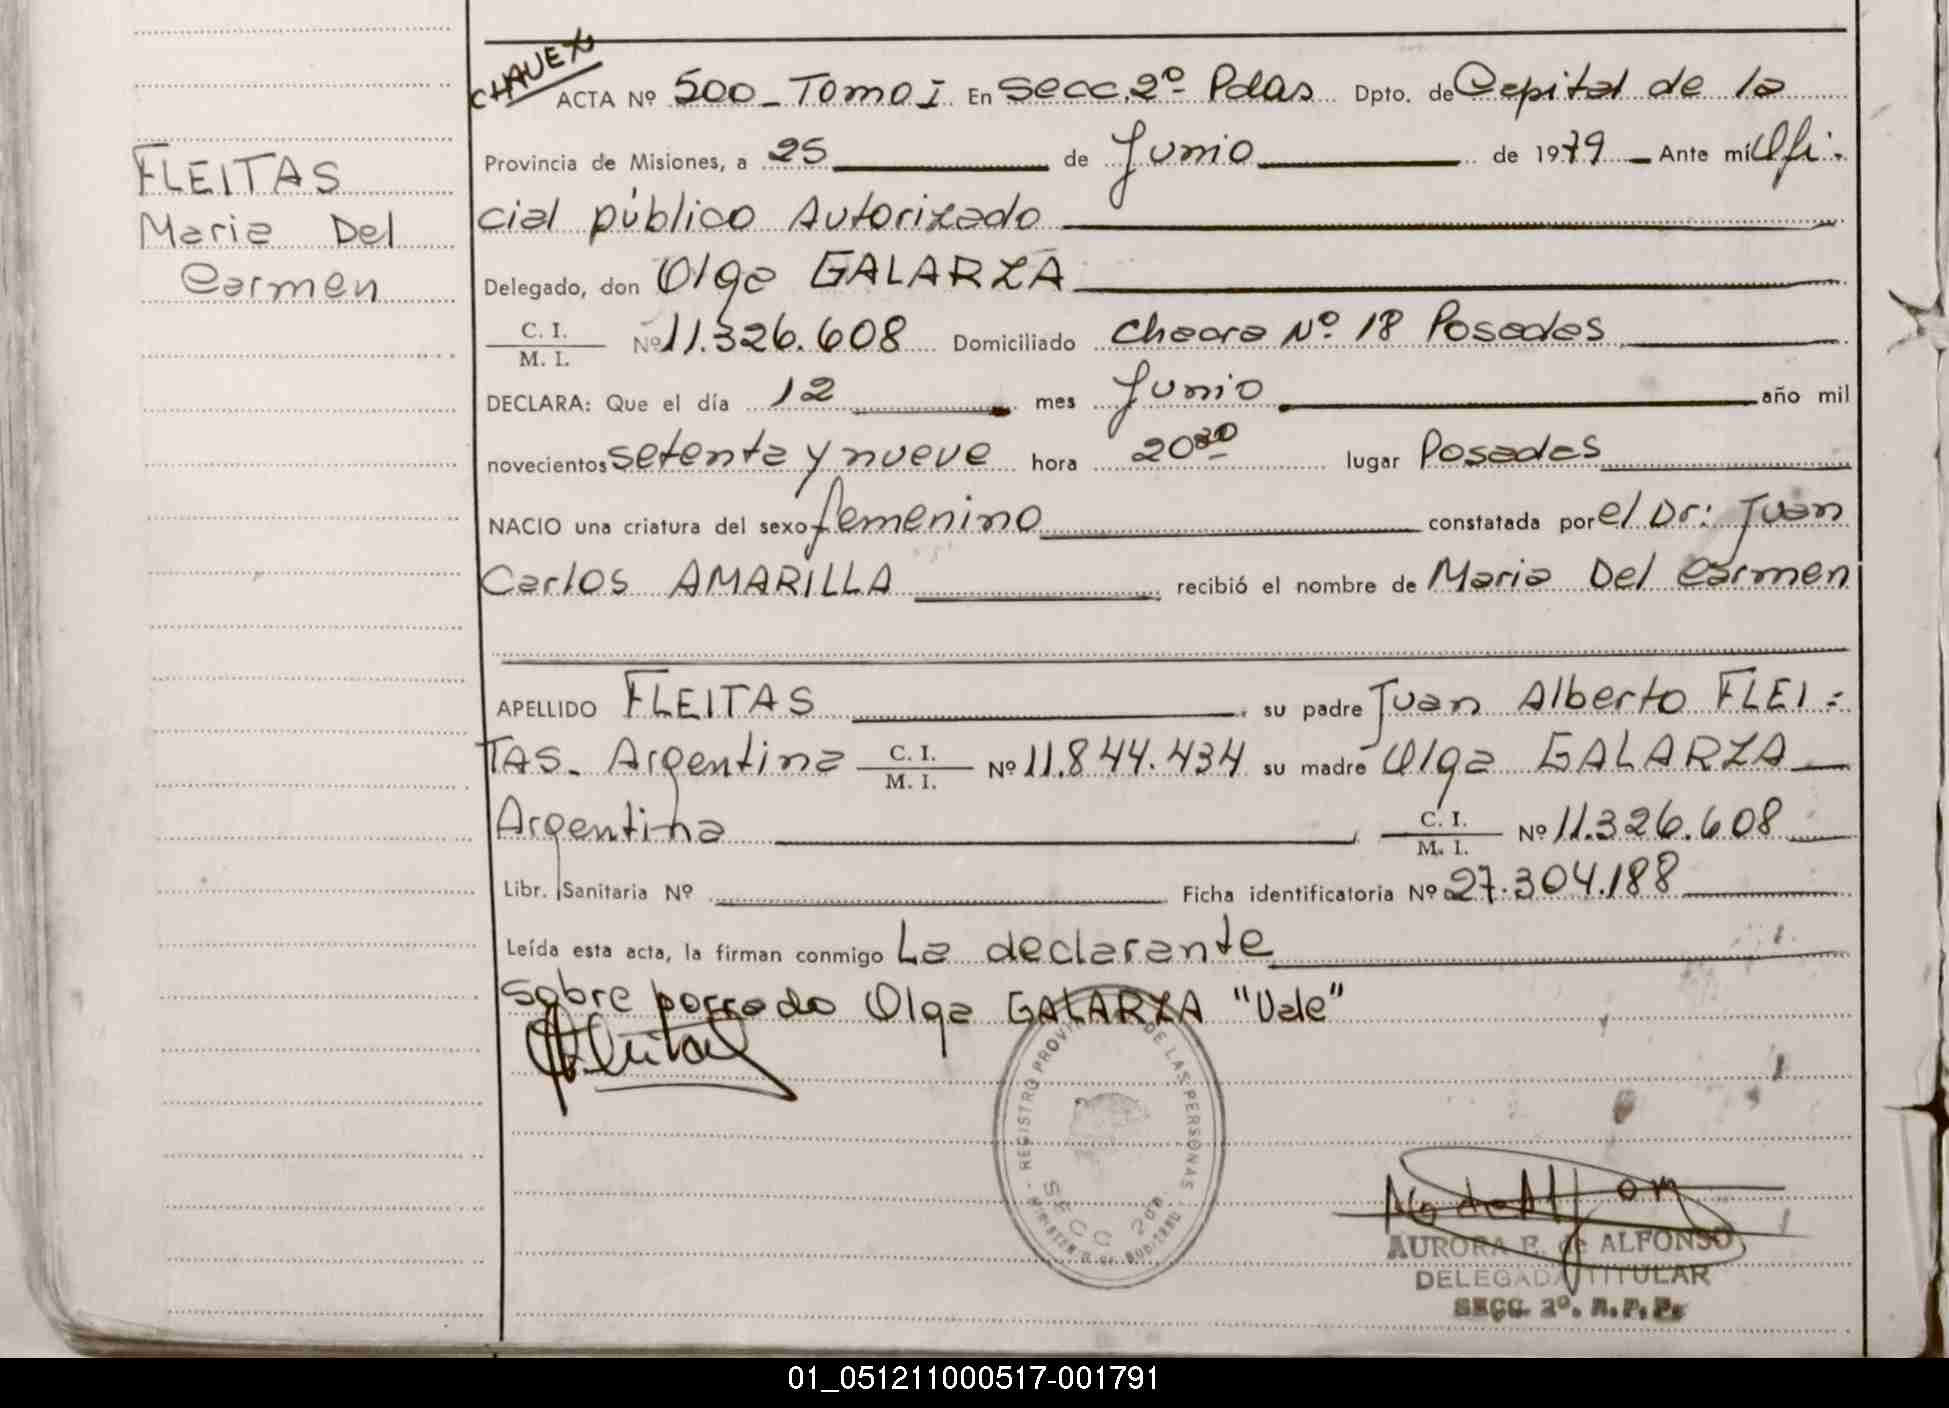 CHAVEX
ACTA Nº 500 - Tomo I En Secc. 2º Pdas Dpto. de Capital de la
Provincia de Misiones, a 25 de Junio de 1979 Ante mí Ofi-
cial público Autorizado
Delegado, don Olga GALARZA
C. I.
M. I. Nº 11.326.608 Domiciliado Chacra Nº 18 Posadas
DECLARA: Que el día 12 mes Junio año mil
novecientos setenta y nueve hora 20 30 lugar Posadas
NACIO una criatura del sexo femenino constatada por el Dr: Juan
Carlos AMARILLA recibió el nombre de Maria Del Carmen
APELLIDO FLEITAS su padre Juan Alberto FLEI=
TAS- Argentina C. I. M. I. Nº 11.844.434 su madre Olga GALARZA
Argentina C. I. M. I. Nº 11.326.608
Libr. Sanitaria Nº Ficha identificatoria Nº 27.304.188
Leída esta acta, la firman conmigo La declarante
sobre borrado Olga GALARZA "Vale"
FLEITAS
Maria Del
Carmen
REGISTRO PROVI DE LAS PERSONAS
SECC 2da
AURORA E. de ALFONSO
DELEGADA TITULAR
SECC. 2º. R. P. P.
01_051211000517-001791